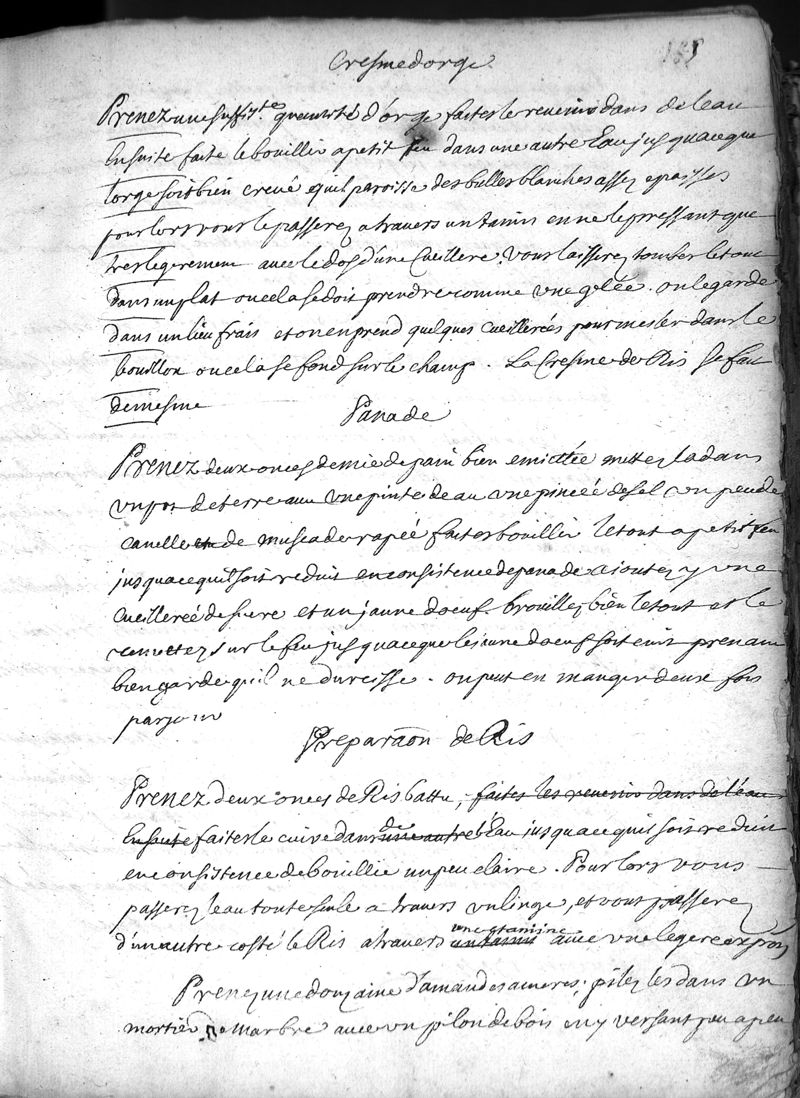 Cresme d'orge
Prenez une suffis.te quantité d'orge faites le revenir dans de leau
Ensuite faite le bouillir a petit feu dans une autre Eau jusquaceque
lorge soit bien crevé equil paroisse des bulles blanches assez epaisses
pour lors vous le passerez a travers un tamis en ne le pressant que
tres legerement avec le dos d'une Cueillere. Vous laisserez tomber le tout
dans un plat ou cela se doit prendre comme une gelée. on le garde
dans un lieu frais et on en prend quelques cueillerées pour mesler dans le
bouillon ou cela se fond sur le champ. La Cresme de Ris se fait
de mesme
Panade
Prenez deux onces de mie de pain bien emiettée mettez la dans
un pot de terre avec une pinte deau une pincéé de sel un peu de
canelle et de muscade rapéé faites bouillir le tout a petit feu
jusquacequil soit reduit en consistence de panade ajoutez y une
cueilleréé de sucre et un jaune doeuf brouillez bien le tout et le
remettez sur le feu jusquaceque le jaune doeuf soit cuit prenant
bien garde quil ne durcisse. on peut en manger deux fois
par jour
Preparaôn de Ris
Prenez deux onces de Ris battu, faites les revenir dans de l'eau
Ensuite faites le cuire dans de une autre l'Eau jusquacequil soit reduit
en consistence de bouillie un peu claire. Pour lors vous
passerez leau toute seule a travers un linge, et vous passerez
d'un autre costé le Ris a travers un tamis une etamine avec une legere expron
Prenez une douzaine d'amandes ameres; pilez les dans un
mortier de marbre avec un pilon de bois en y versant peu a peu